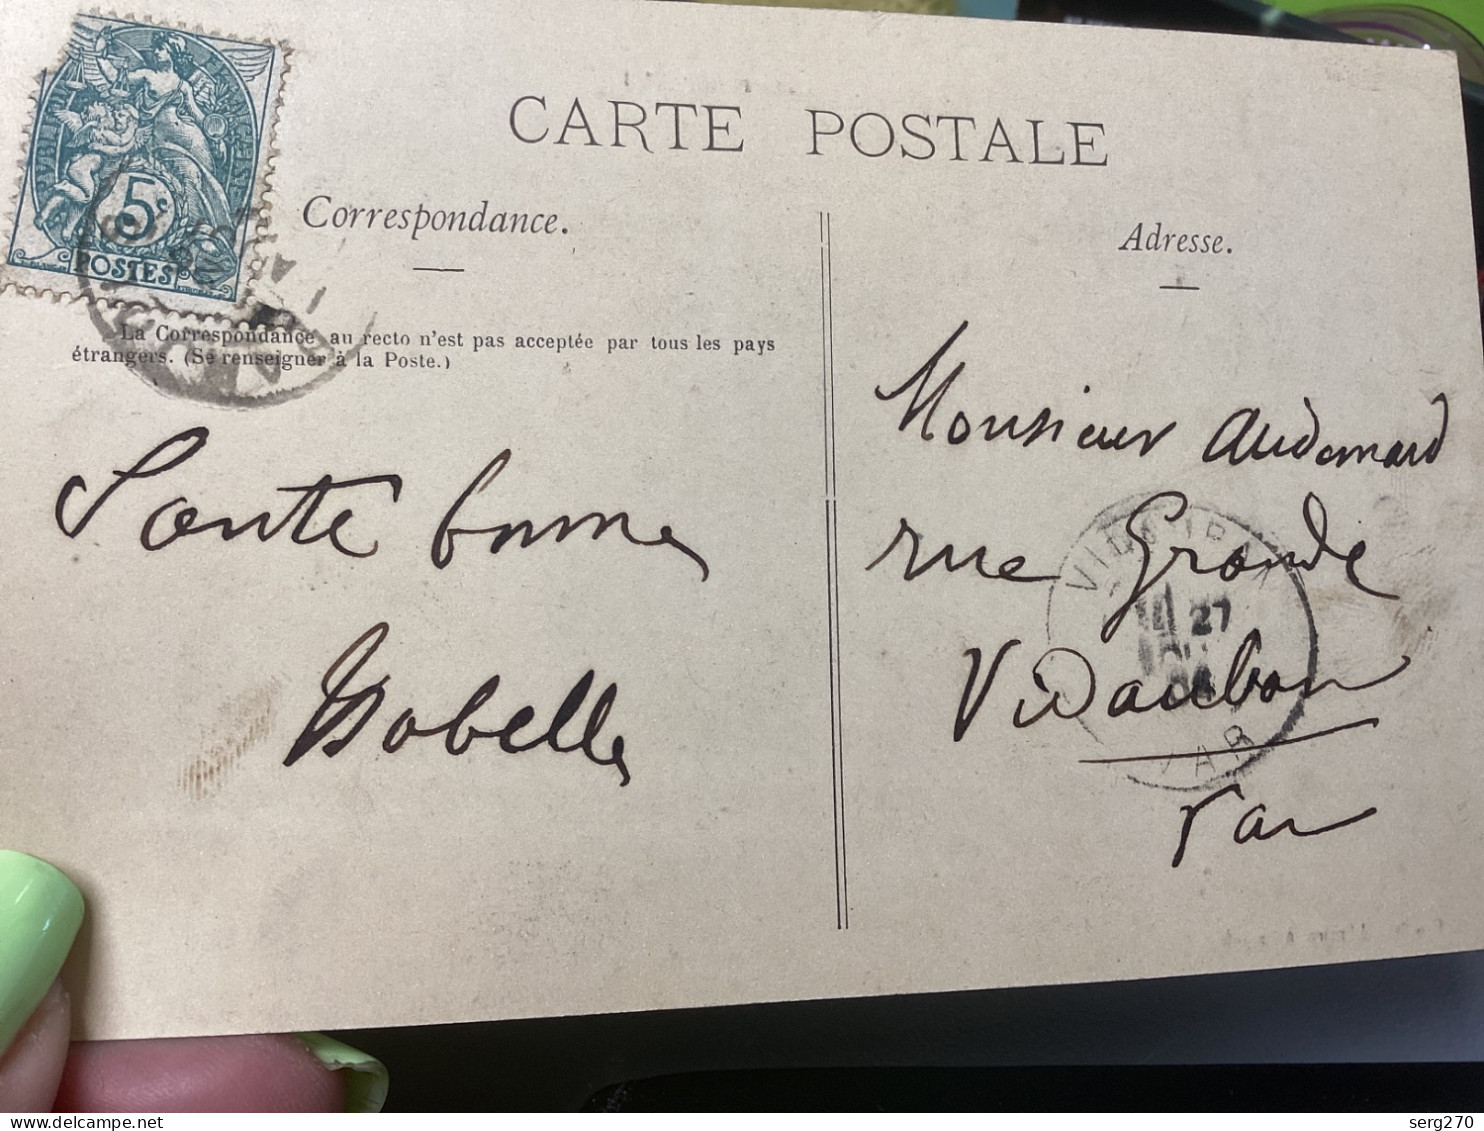 CARTE POSTALE
Correspondance.
Adresse.
5c
POSTES
La Correspondance au recto n'est pas acceptée par tous les pays
étrangers. (Se renseigner à la Poste.)
Santé bonne
Isabelle
Monsieur Audemard
rue Grande
Vidauban
Var
27
VAR
serg270